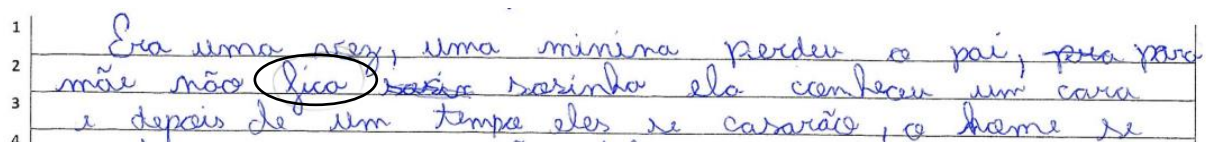 1 Era uma vez, uma minina perdeu o pai, pra para
2 mãe não fica sosin sosinha ela conheceu um cara
3 e depois de um tempo eles se casarão, o home se
4